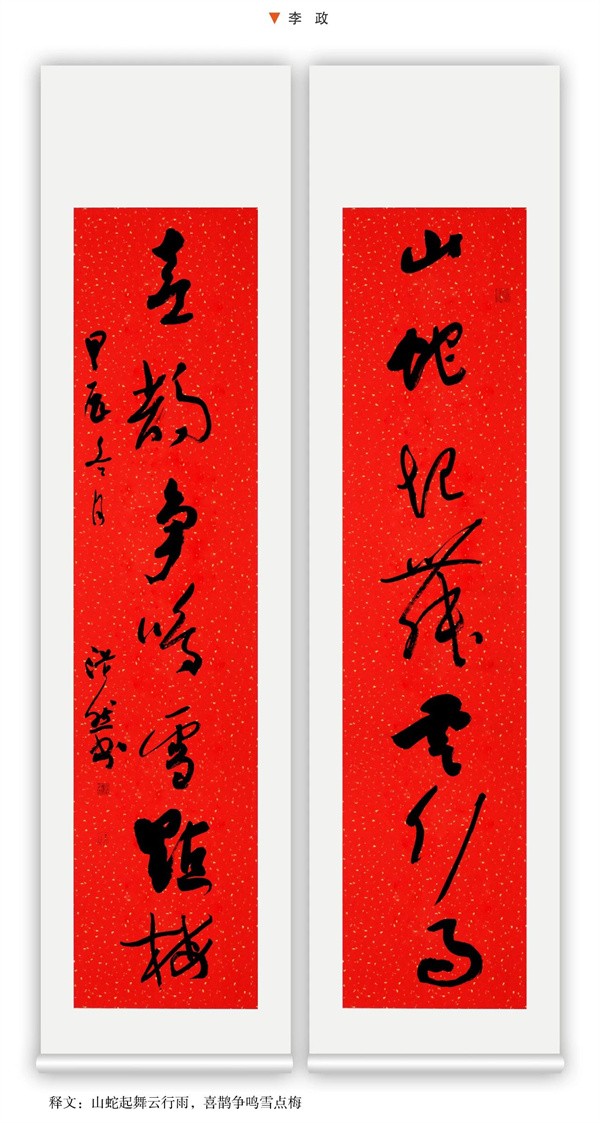 李 政
山蛇起舞雲行雨
喜鵲争鳴雪點梅
甲辰冬月
浩然書
释文：山蛇起舞云行雨，喜鹊争鸣雪点梅